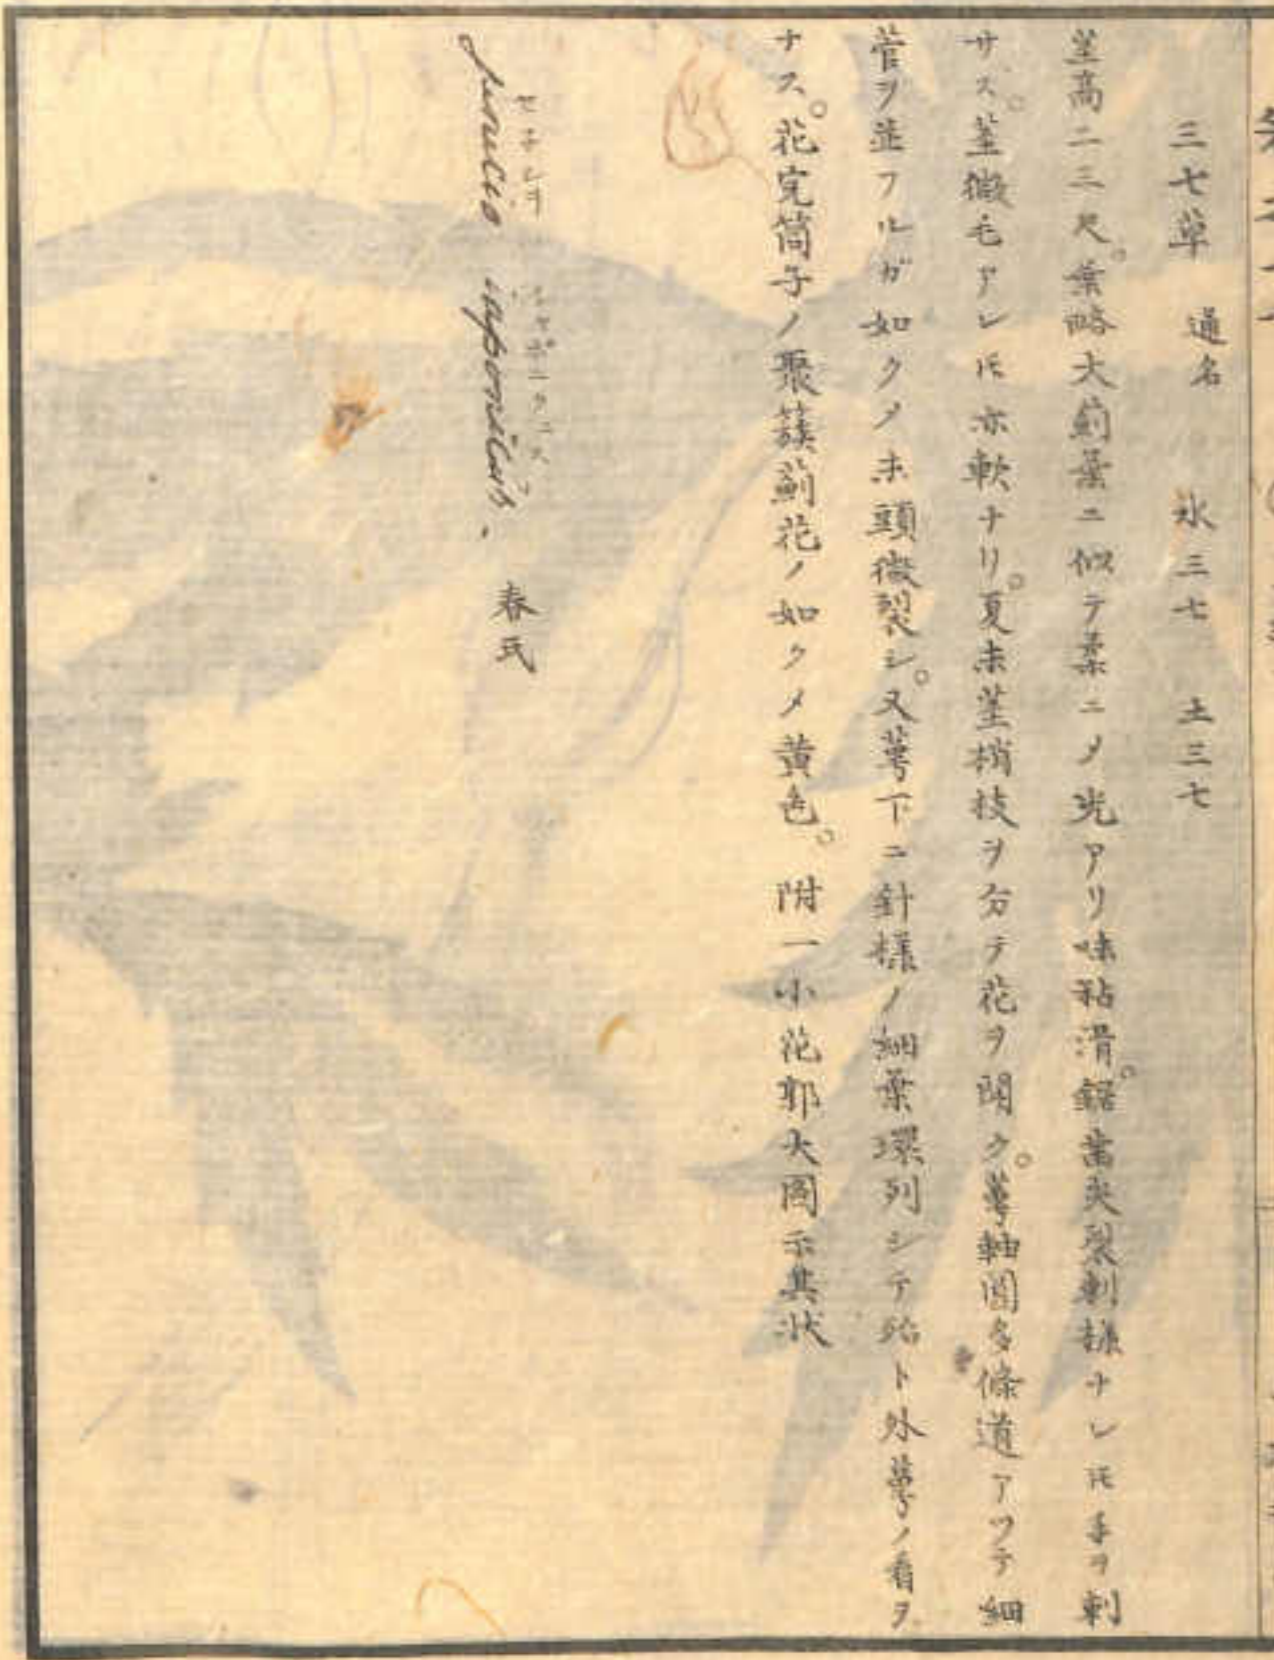 三七草 通名 水三七 土三七
莖高二三尺。葉略大薊葉ニ似テ柔ニメ光アリ味粘滑。鋸齒尖裂刺様ナレ𪜈手ヲ刺
サス。莖微毛アレ𪜈亦軟ナリ。夏末莖梢枝ヲ分テ花ヲ開ク。萼軸圓多條道アツテ細
管ヲ並フルガ如クメ末頭微裂シ。又萼下ニ針様ノ細葉環列シテ殆ト外萼ノ看ヲ
ナス。花完筒子ノ聚簇薊花ノ如クメ黄色。附一小花郭大圖示其状
japonicus. 春氏